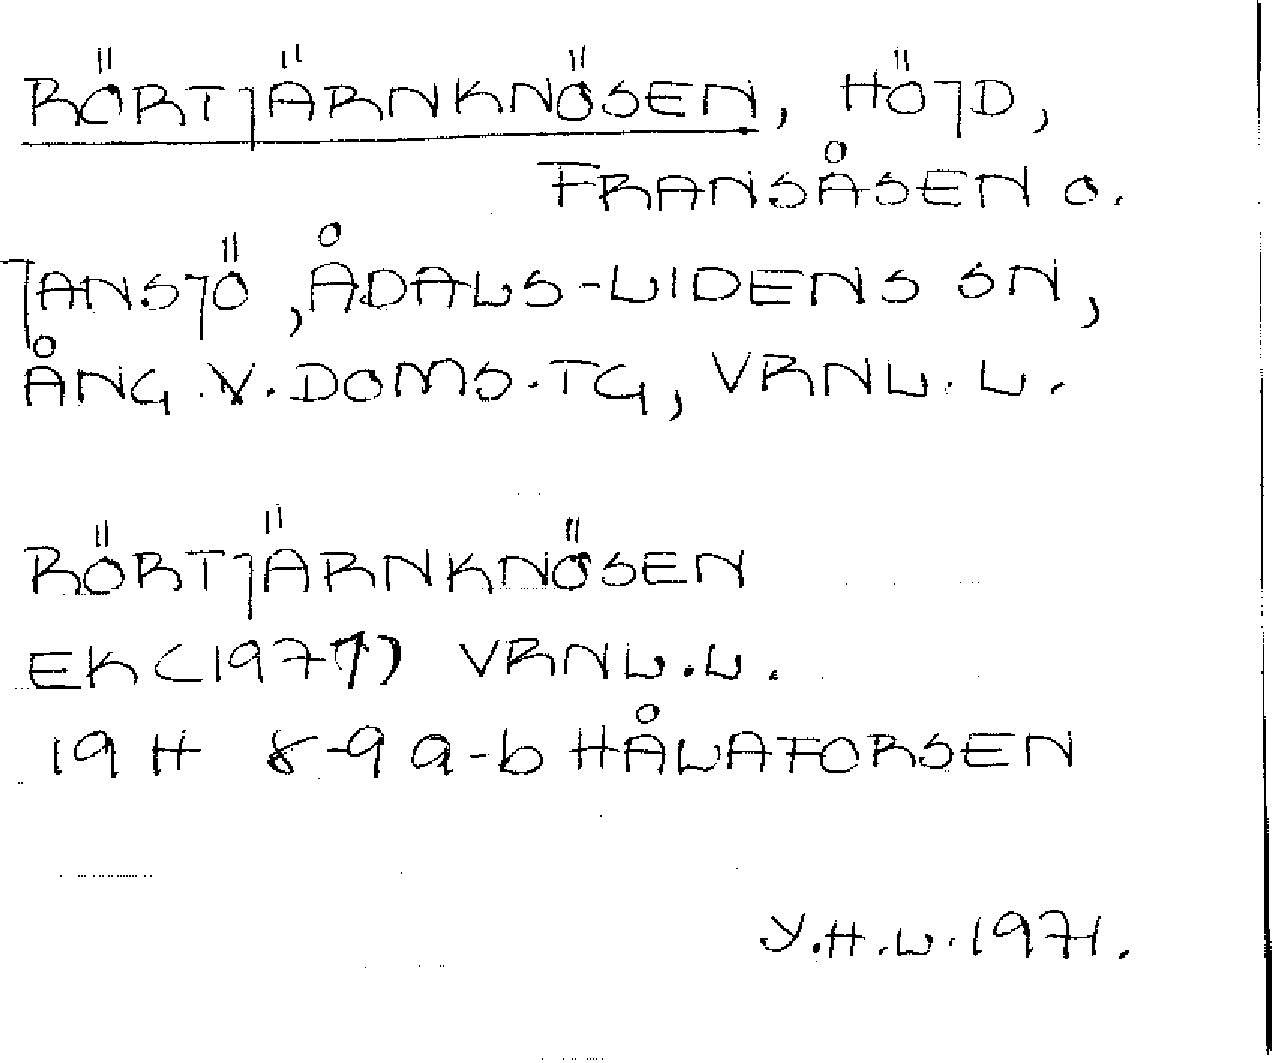 RÖRTJÄRNKNÖSEN, HÖJD,
FRANSÅSEN O.
JANSJÖ, ÅDALS-LIDENS SN,
ÅNG. V. DOMS.TG, VRNL. L.
RÖRTJÄRNKNÖSEN
EK (1971) VRNL. L.
19 H 8-9 a-b HÅLAFORSEN
Y.H.L. 1971.